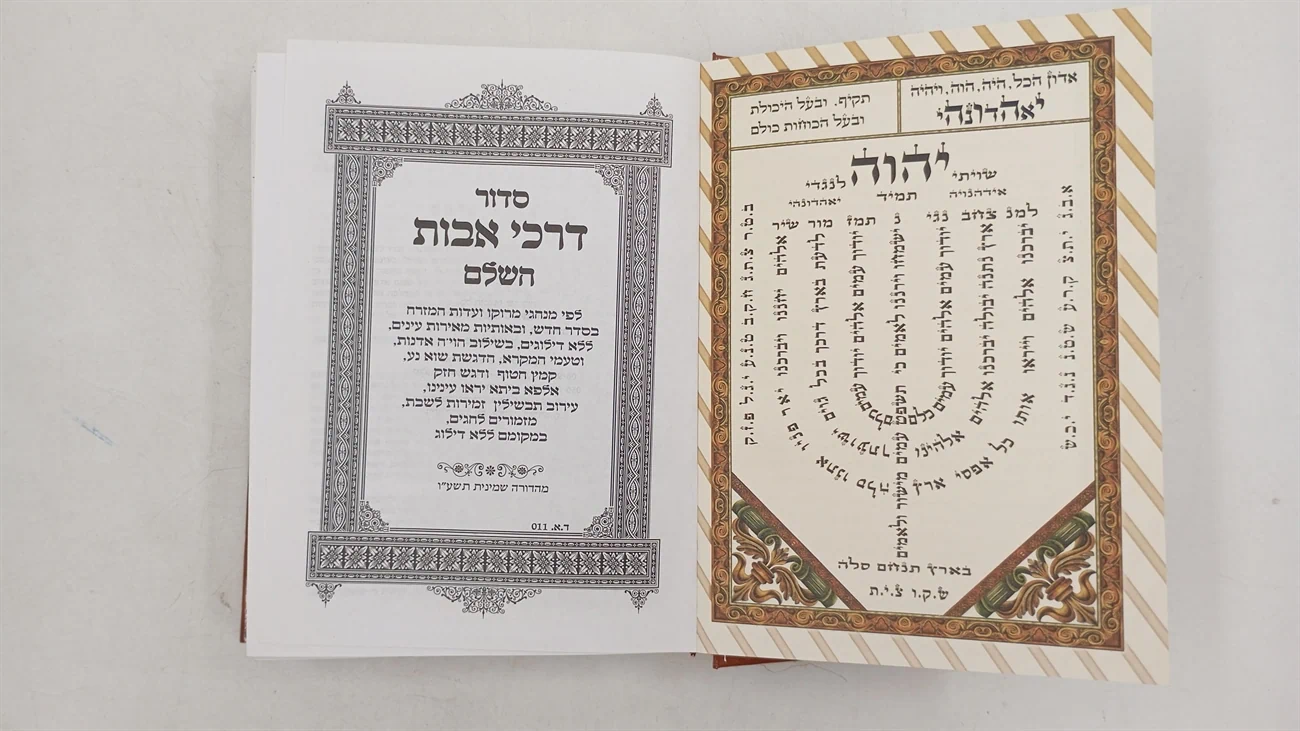 אדון הכל. היה. הוה. ויהיה
יאהדונהי
תקיף. ובעל היכולת
ובעל הכוחות כולם
שויתי יהוה לנגדי
אידהנויה תמיד יאהדונהי
למנ צחב נגי נ תמז מור שיר
א.ב.ג י.ת.צ ק.ר.ע ש.ט.נ נ.ג.ד י.כ.ש
ב.ט.ר צ.ת.ג ח.ק.ב ט.נ.ע י.ג.ל פ.ז.ק
אלהים יחננו ויברכנו יאר פניו אתנו סלה
לדעת בארץ דרכך בכל גוים ישועתך
יודוך עמים אלהים יודוך עמים כלם
ישמחו וירננו לאמים כי תשפט עמים מישור ולאמים
יודוך עמים אלהים יודוך עמים כלם
ארץ נתנה יבולה יברכנו אלהים אלהינו
יברכנו אלהים וייראו אותו כל אפסי ארץ
בארץ תנחם סלה
ש.ק.ו צ.י.ת
סדור
דרכי אבות
השלם
לפי מנהגי מרוקו ועדות המזרח
בסדר חדש, ובאותיות מאירות עינים,
ללא דילוגים, בשילוב הוי״ה אדנות,
וטעמי המקרא, הדגשת שוא נע,
קמץ חטוף ודגש חזק
אלפא ביתא יראו עינינו,
עירוב תבשילין זמירות לשבת,
מזמורים לחגים,
במקומם ללא דילוג
מהדורה שמינית תשע״ו
ד.א. 011